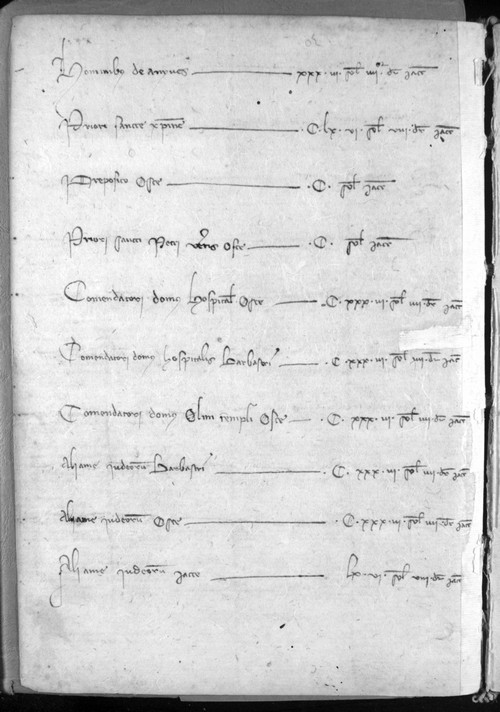 Hominibus de anyues xxx.vi. sol iiii or dr jacc
Priori sancte xpine .C.lx.vi. sol viii dr jacc
Preposito Osce .C. sol jacc
Priori sancti Petri veteris Osce .C. sol jacc
Comendatori domus hospital Osce .C.xxx.vi. sol iiii dr jacc
Comendatori domus hospitalis Barbastri C xxx.vi. sol iiii dr jacc
Comendatori domus Olim templi Osce .C.xxx.vi. sol iiii dr jacc
Aliame judeorum Barbastri .C.xxx.vi. sol iiii dr jacc
Aliame judeorum Osce .C.xxx.vi. sol iiii dr jacc
Aliame judeorum jacce lx.vi. sol viii dr jacc